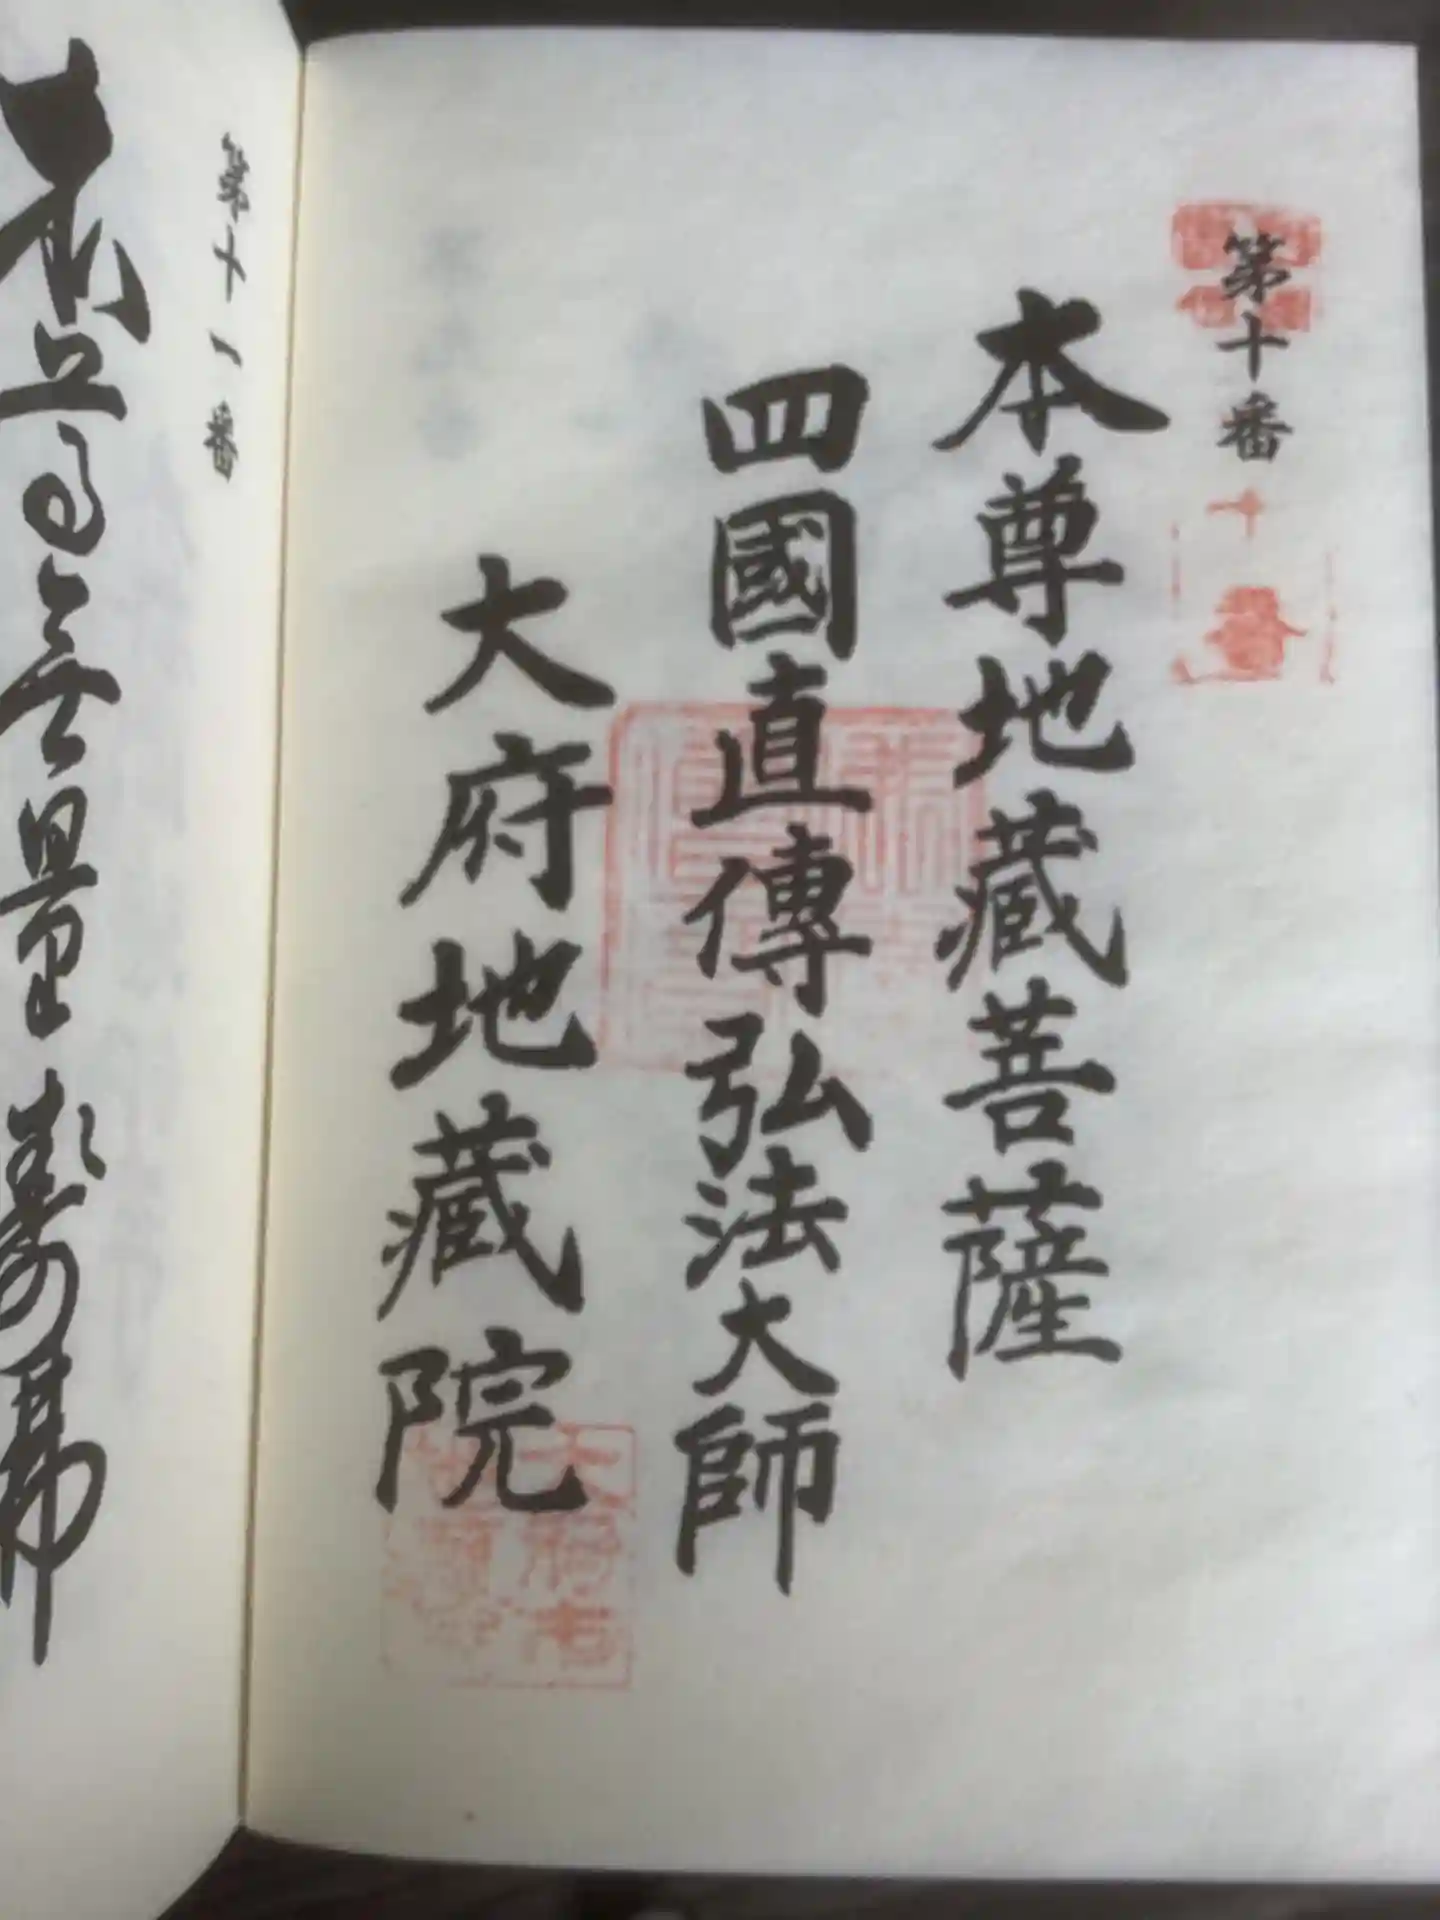 第十番
十番
本尊地蔵菩薩
四國直傳弘法大師
大府地蔵院
第十一番
無量寿